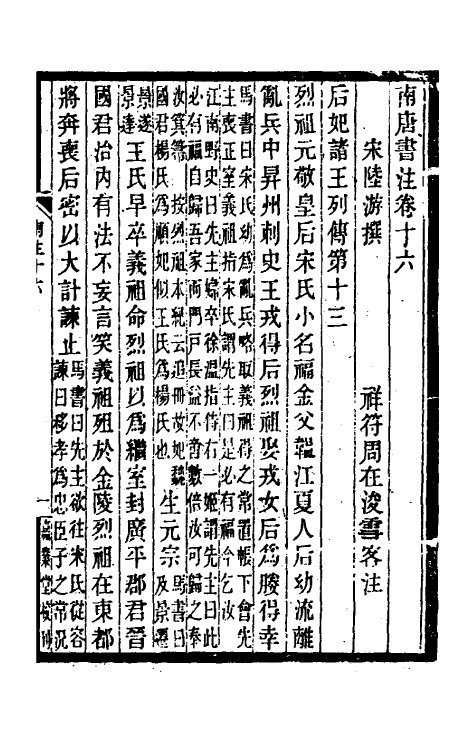 南唐書注卷十六
宋陸游撰　祥符周在浚雪客注
后妃諸王列傳第十三
烈祖元敬皇后宋氏小名福金父韞江夏人后幼流離
亂兵中昇州刺史王戎得后烈祖娶戎女后為媵得幸
馬書曰宋氏幼為亂兵略取義祖得之常置帳下會先
主喪正室義祖指宋氏謂先主曰是必有福今乞汝
江南野史曰先主嫡卒徐溫指侍右一姬謂先主曰此
必有福自歸吾家而門戶長益不啻數倍汝可歸之奉
汝箕箒　按烈祖本紀云追冊故妃魏
國君楊氏為順妃似王氏為楊氏也
生元宗
馬書曰
及景遷
景遂
景達
王氏早卒義祖命烈祖以為繼室封廣平郡君晉
國君治內有法不妄言笑義祖殂於金陵烈祖在東都
將奔喪后密以大計諫止
馬書曰先主欲往宋氏從容
諫曰移孝為忠臣子之常況
南注十六
一
嘉業堂校刊